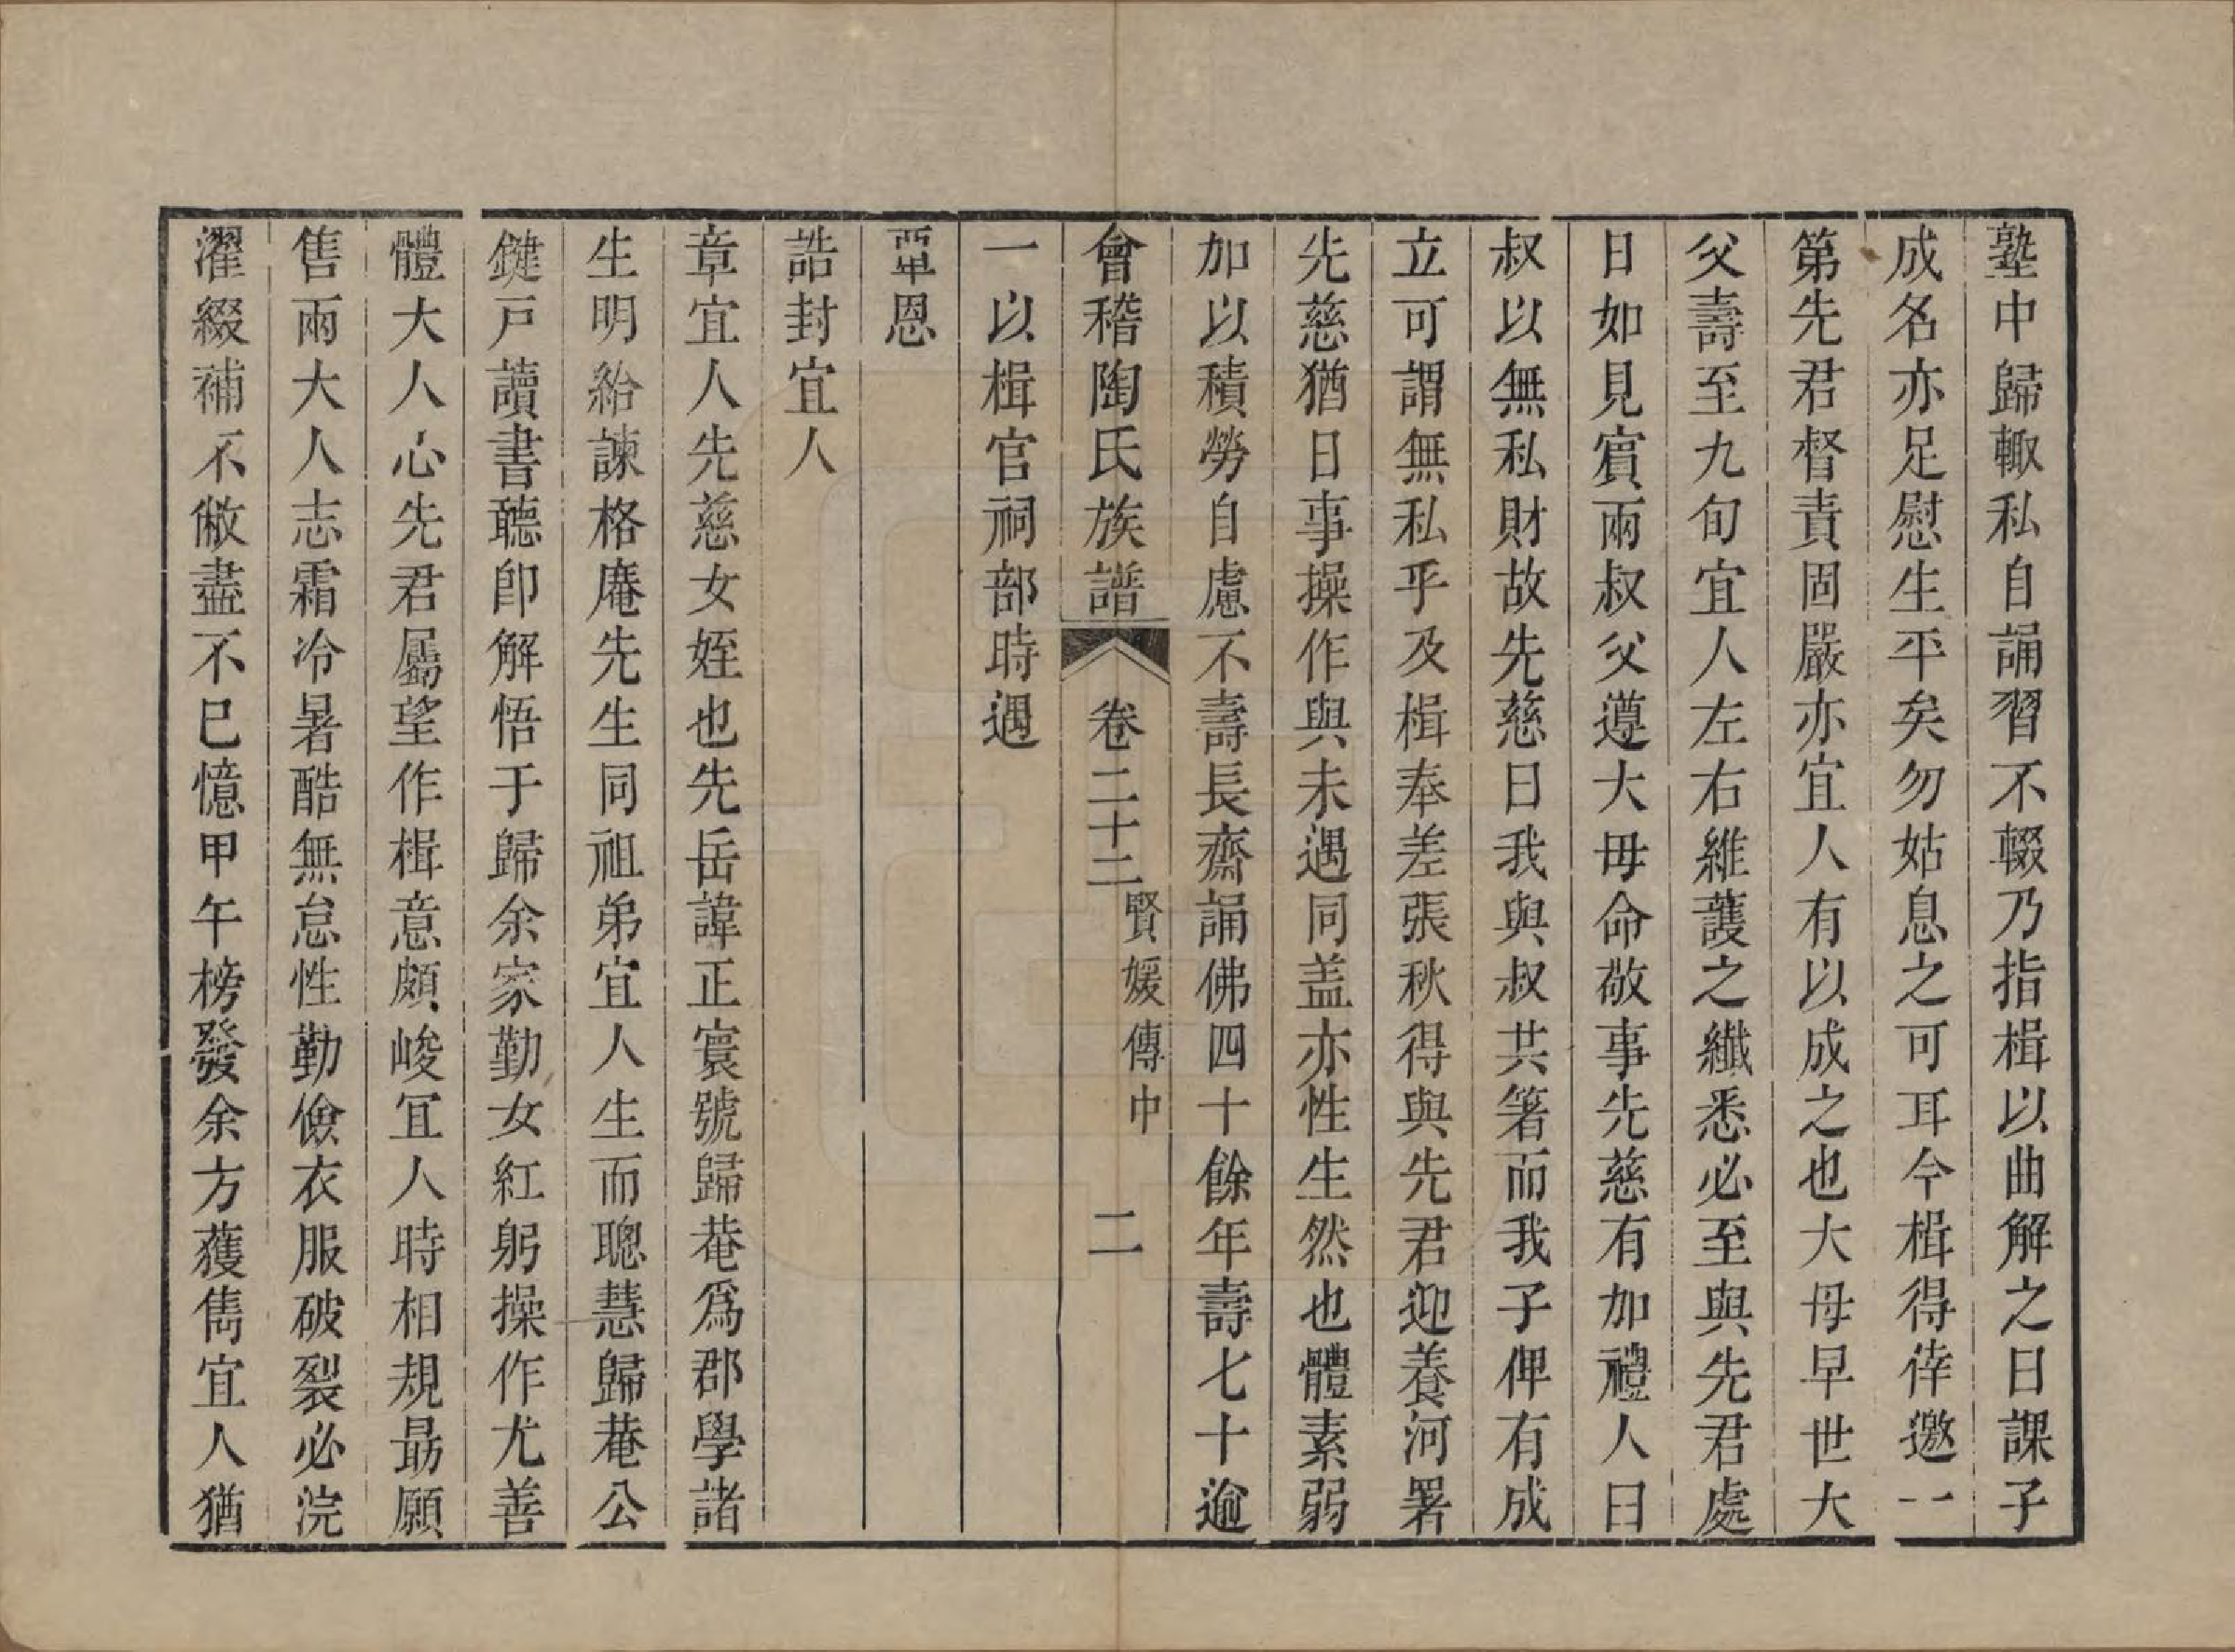 塾中歸輙私自誦習不輟乃指楫以曲解之曰課子
成名亦足慰生平矣勿姑息之可耳今楫得倖邀一
第先君督責固嚴亦宜人有以成之也大母早世大
父壽至九旬宜人左右維護之纖悉必至與先君處
日如見賔兩叔父遵大毋命敬事先慈有加禮人曰
叔以無私財故先慈曰我與叔共箸而我子俾有成
立可謂無私乎及楫奉差張秋得與先君迎養河署
先慈猶日事操作與未遇同盖亦性生然也體素弱
加以積勞自慮不壽長齋誦佛四十餘年壽七十逾
會稽陶氏族譜 卷二十二 賢媛傳中 二
一以楫官祠部時遇
覃恩
誥封宜人
章宜人先慈女姪也先岳諱正寰號歸菴爲郡學諸
生明給諫格庵先生同祖弟宜人生而聰慧歸菴公
鍵戸讀書聽卽解悟于歸余家勤女紅躬操作尤善
體大人心先君屬望作楫意頗峻宜人時相規最願
售兩大人志霜冷暑酷無怠性勤儉衣服破裂必浣
濯綴補不敝盡不已憶甲午榜發余方獲雋宜人猶